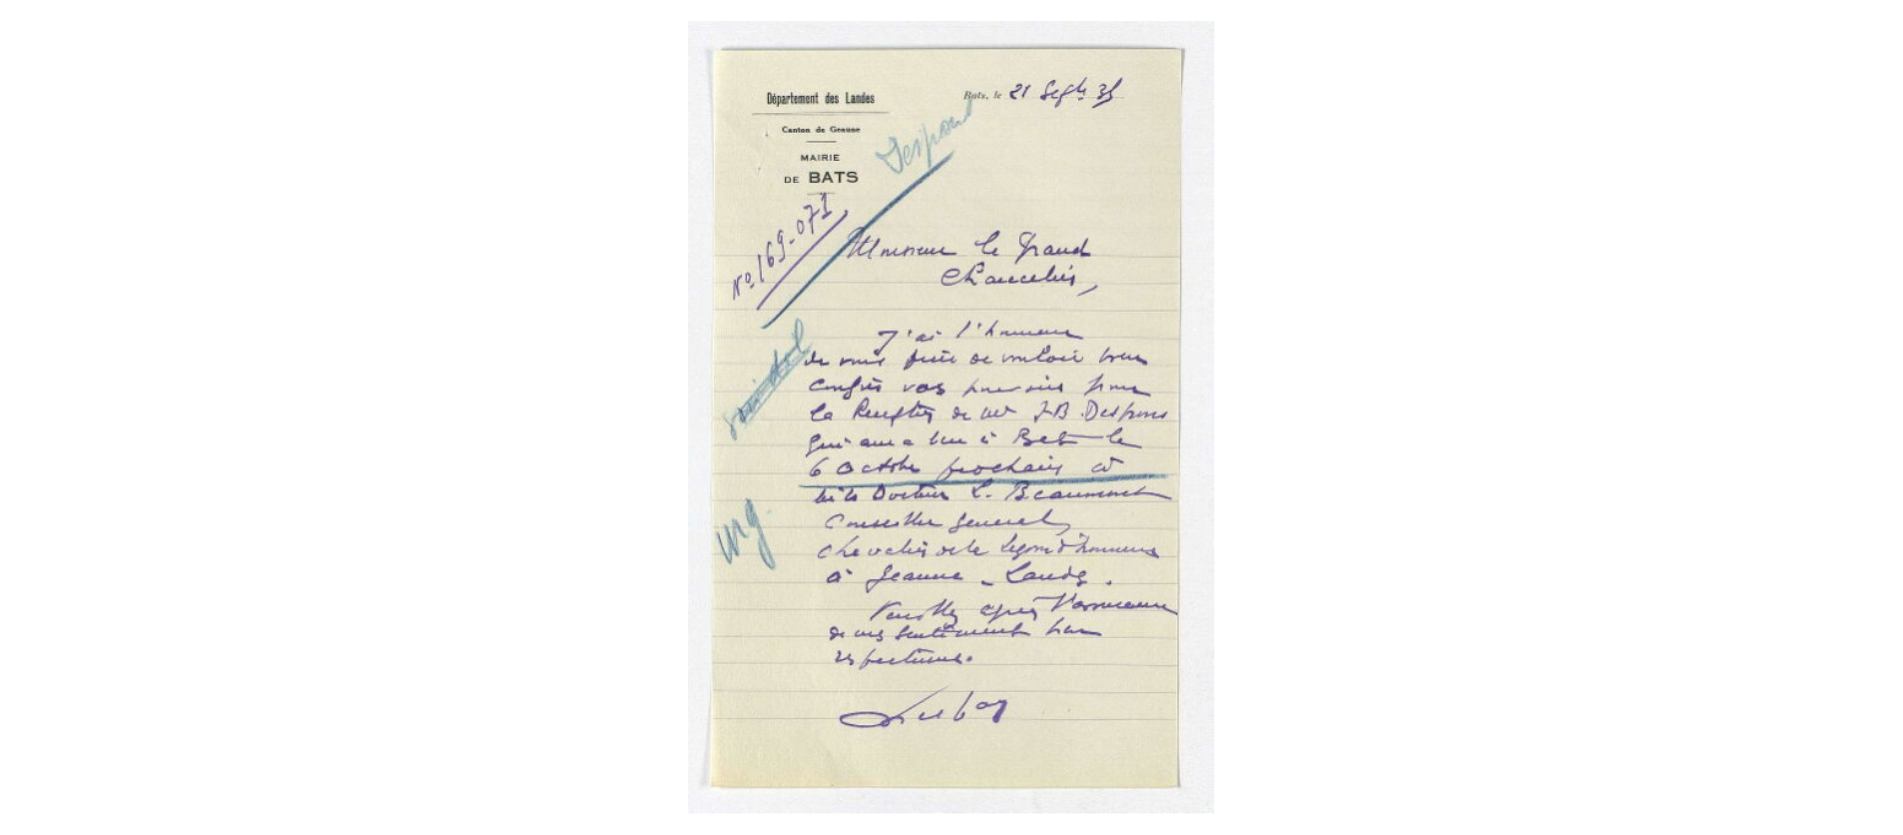 Département des Landes
Bats, le 21 Septe 35
Canton de Geaune
MAIRIE
DE BATS
Nº 169-071
Monsieur le Grand
Chancelier,
J'ai l'honneur
de vous prier de vouloir bien
confier vos pouvoirs pour
la Réception de Mr J-B. Despons
qui aura lieu à Bats le
6 Octobre prochain
Docteur L. Beaumont
Conseiller général,
Chevalier de la Légion d'honneur
à Geaune - Landes.
Veuillez agréer l'assurance
de mes sentiments bien
respectueux.
urg.